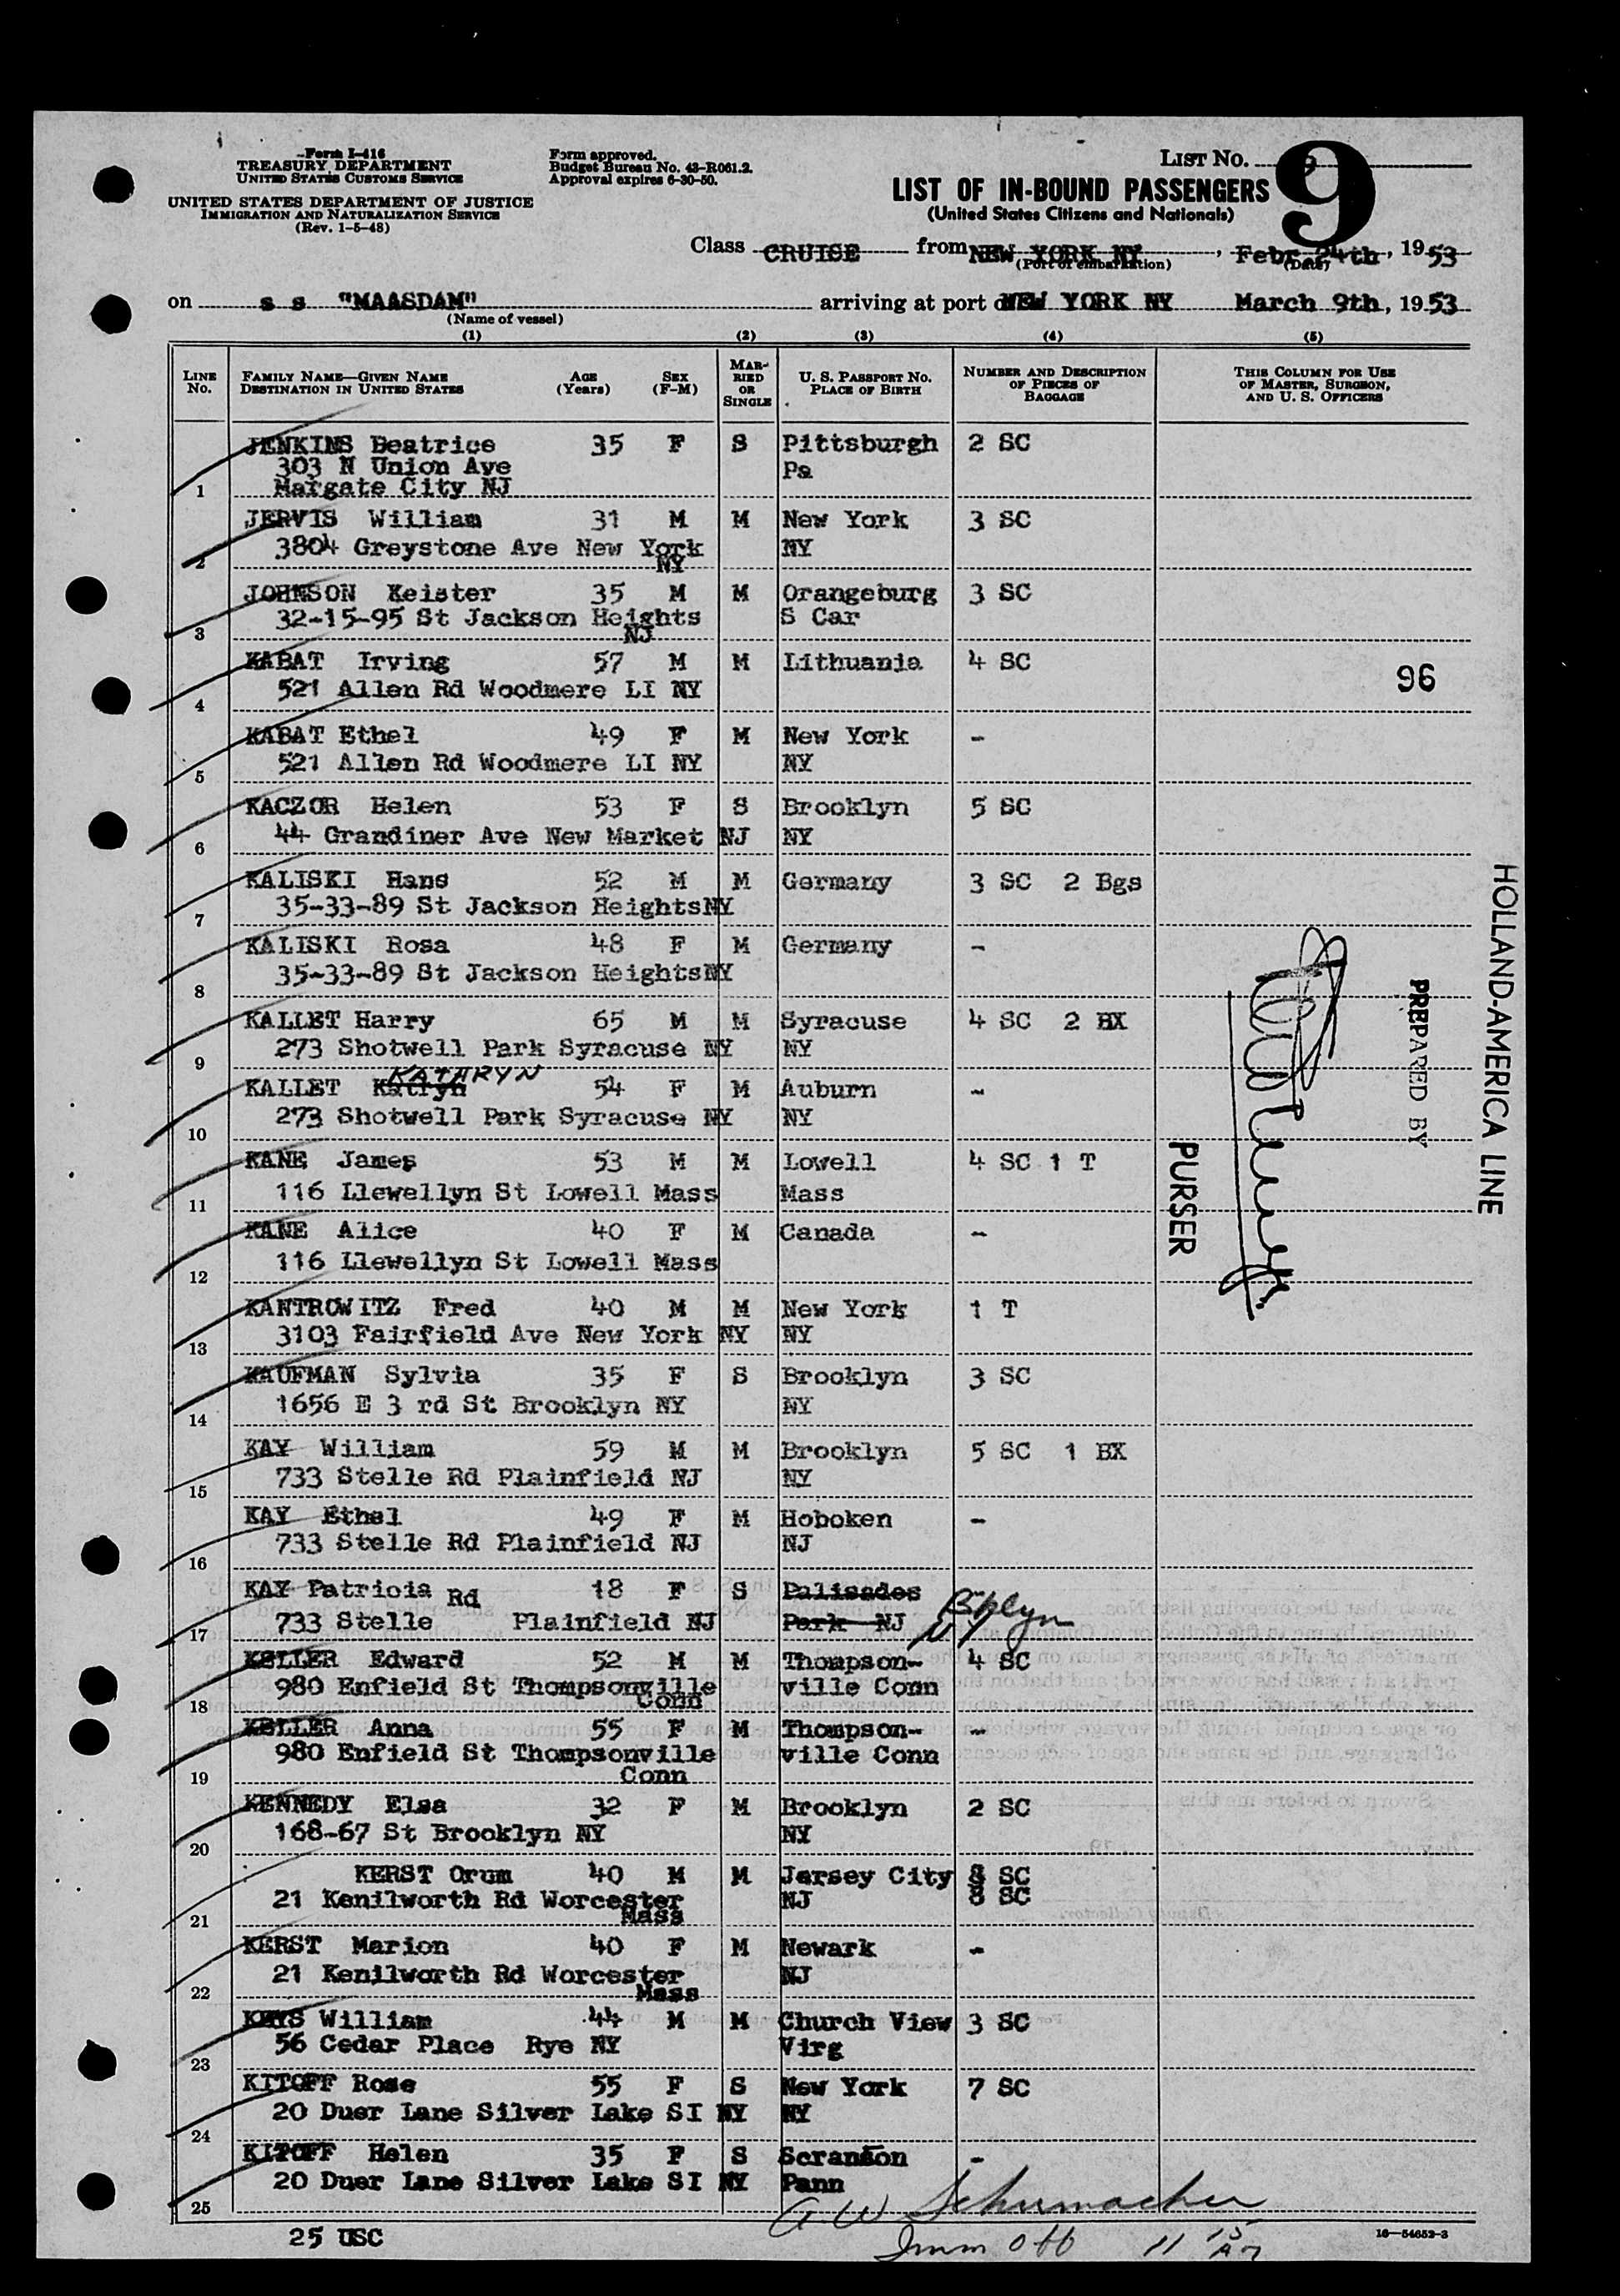 Form I-416
TREASURY DEPARTMENT
UNITED STATES CUSTOMS SERVICE
UNITED STATES DEPARTMENT OF JUSTICE
IMMIGRATION AND NATURALIZATION SERVICE
(Rev. 1-5-48)
Form approved.
Budget Bureau No. 43-R061.2.
Approval expires 6-30-50.
LIST NO. 9
LIST OF IN-BOUND PASSENGERS
(United States Citizens and Nationals)
Class CRUISE from NEW YORK NY, Febr 24th, 1953
(Port of embarkation) (Date)
on s s "MAASDAM" arriving at port of NEW YORK NY March 9th, 1953
(Name of vessel)
(1) (2) (3) (4) (5)
LINE NO. FAMILY NAME—GIVEN NAME DESTINATION IN UNITED STATES AGE (Years) SEX (F-M) MARRIED OR SINGLE U. S. PASSPORT NO. PLACE OF BIRTH NUMBER AND DESCRIPTION OF PIECES OF BAGGAGE THIS COLUMN FOR USE OF MASTER, SURGEON, AND U. S. OFFICERS
JENKINS Beatrice 35 F S Pittsburgh 2 SC
303 N Union Ave Pa
1 Margate City NJ
JERVIS William 31 M M New York 3 SC
3804 Greystone Ave New York NY
2 NY
JOHNSON Keister 35 M M Orangeburg 3 SC
32-15-95 St Jackson Heights S Car
3 NJ
KABAT Irving 57 M M Lithuania 4 SC
521 Allen Rd Woodmere LI NY 96
4
KABAT Ethel 49 F M New York -
521 Allen Rd Woodmere LI NY NY
5
KACZOR Helen 53 F S Brooklyn 5 SC
44 Grandiner Ave New Market NJ NY
6
KALISKI Hans 52 M M Germany 3 SC 2 Bgs
35-33-89 St Jackson Heights NY
7
KALISKI Rosa 48 F M Germany -
35-33-89 St Jackson Heights NY
8
KALLET Harry 65 M M Syracuse 4 SC 2 BX
273 Shotwell Park Syracuse NY NY
9
KATHRYN
KALLET Katryn 54 F M Auburn -
273 Shotwell Park Syracuse NY NY
10
KANE James 53 M M Lowell 4 SC 1 T
116 Llewellyn St Lowell Mass Mass
11
KANE Alice 40 F M Canada -
116 Llewellyn St Lowell Mass
12
KANTROWITZ Fred 40 M M New York 1 T
3103 Fairfield Ave New York NY NY
13
KAUFMAN Sylvia 35 F S Brooklyn 3 SC
1656 E 3 rd St Brooklyn NY NY
14
KAY William 59 M M Brooklyn 5 SC 1 BX
733 Stelle Rd Plainfield NJ NY
15
KAY Ethel 49 F M Hoboken -
733 Stelle Rd Plainfield NJ NJ
16
KAY Patricia Rd 18 F S Palisades B'klyn
733 Stelle Plainfield NJ Park NJ NY
17
KELLER Edward 52 M M Thompson- 4 SC
980 Enfield St Thompsonville ville Conn
18 Conn
KELLER Anna 55 F M Thompson- -
980 Enfield St Thompsonville ville Conn
19 Conn
KENNEDY Elsa 32 F M Brooklyn 2 SC
168-67 St Brooklyn NY NY
20
KERST Orum 40 M M Jersey City 8 SC
21 Kenilworth Rd Worcester NJ 8 SC
21 Mass
KERST Marion 40 F M Newark -
21 Kenilworth Rd Worcester NJ
22 Mass
KEYS William 44 M M Church View 3 SC
56 Cedar Place Rye NY Virg
23
KITOFF Rose 55 F S New York 7 SC
20 Duer Lane Silver Lake SI NY NY
24
KITOFF Helen 35 F S Scranton -
20 Duer Lane Silver Lake SI NY Penn
25
25 USC
A W Schumacher
Imm Off 11
16—54652-3
HOLLAND-AMERICA LINE
PREPARED BY
PURSER